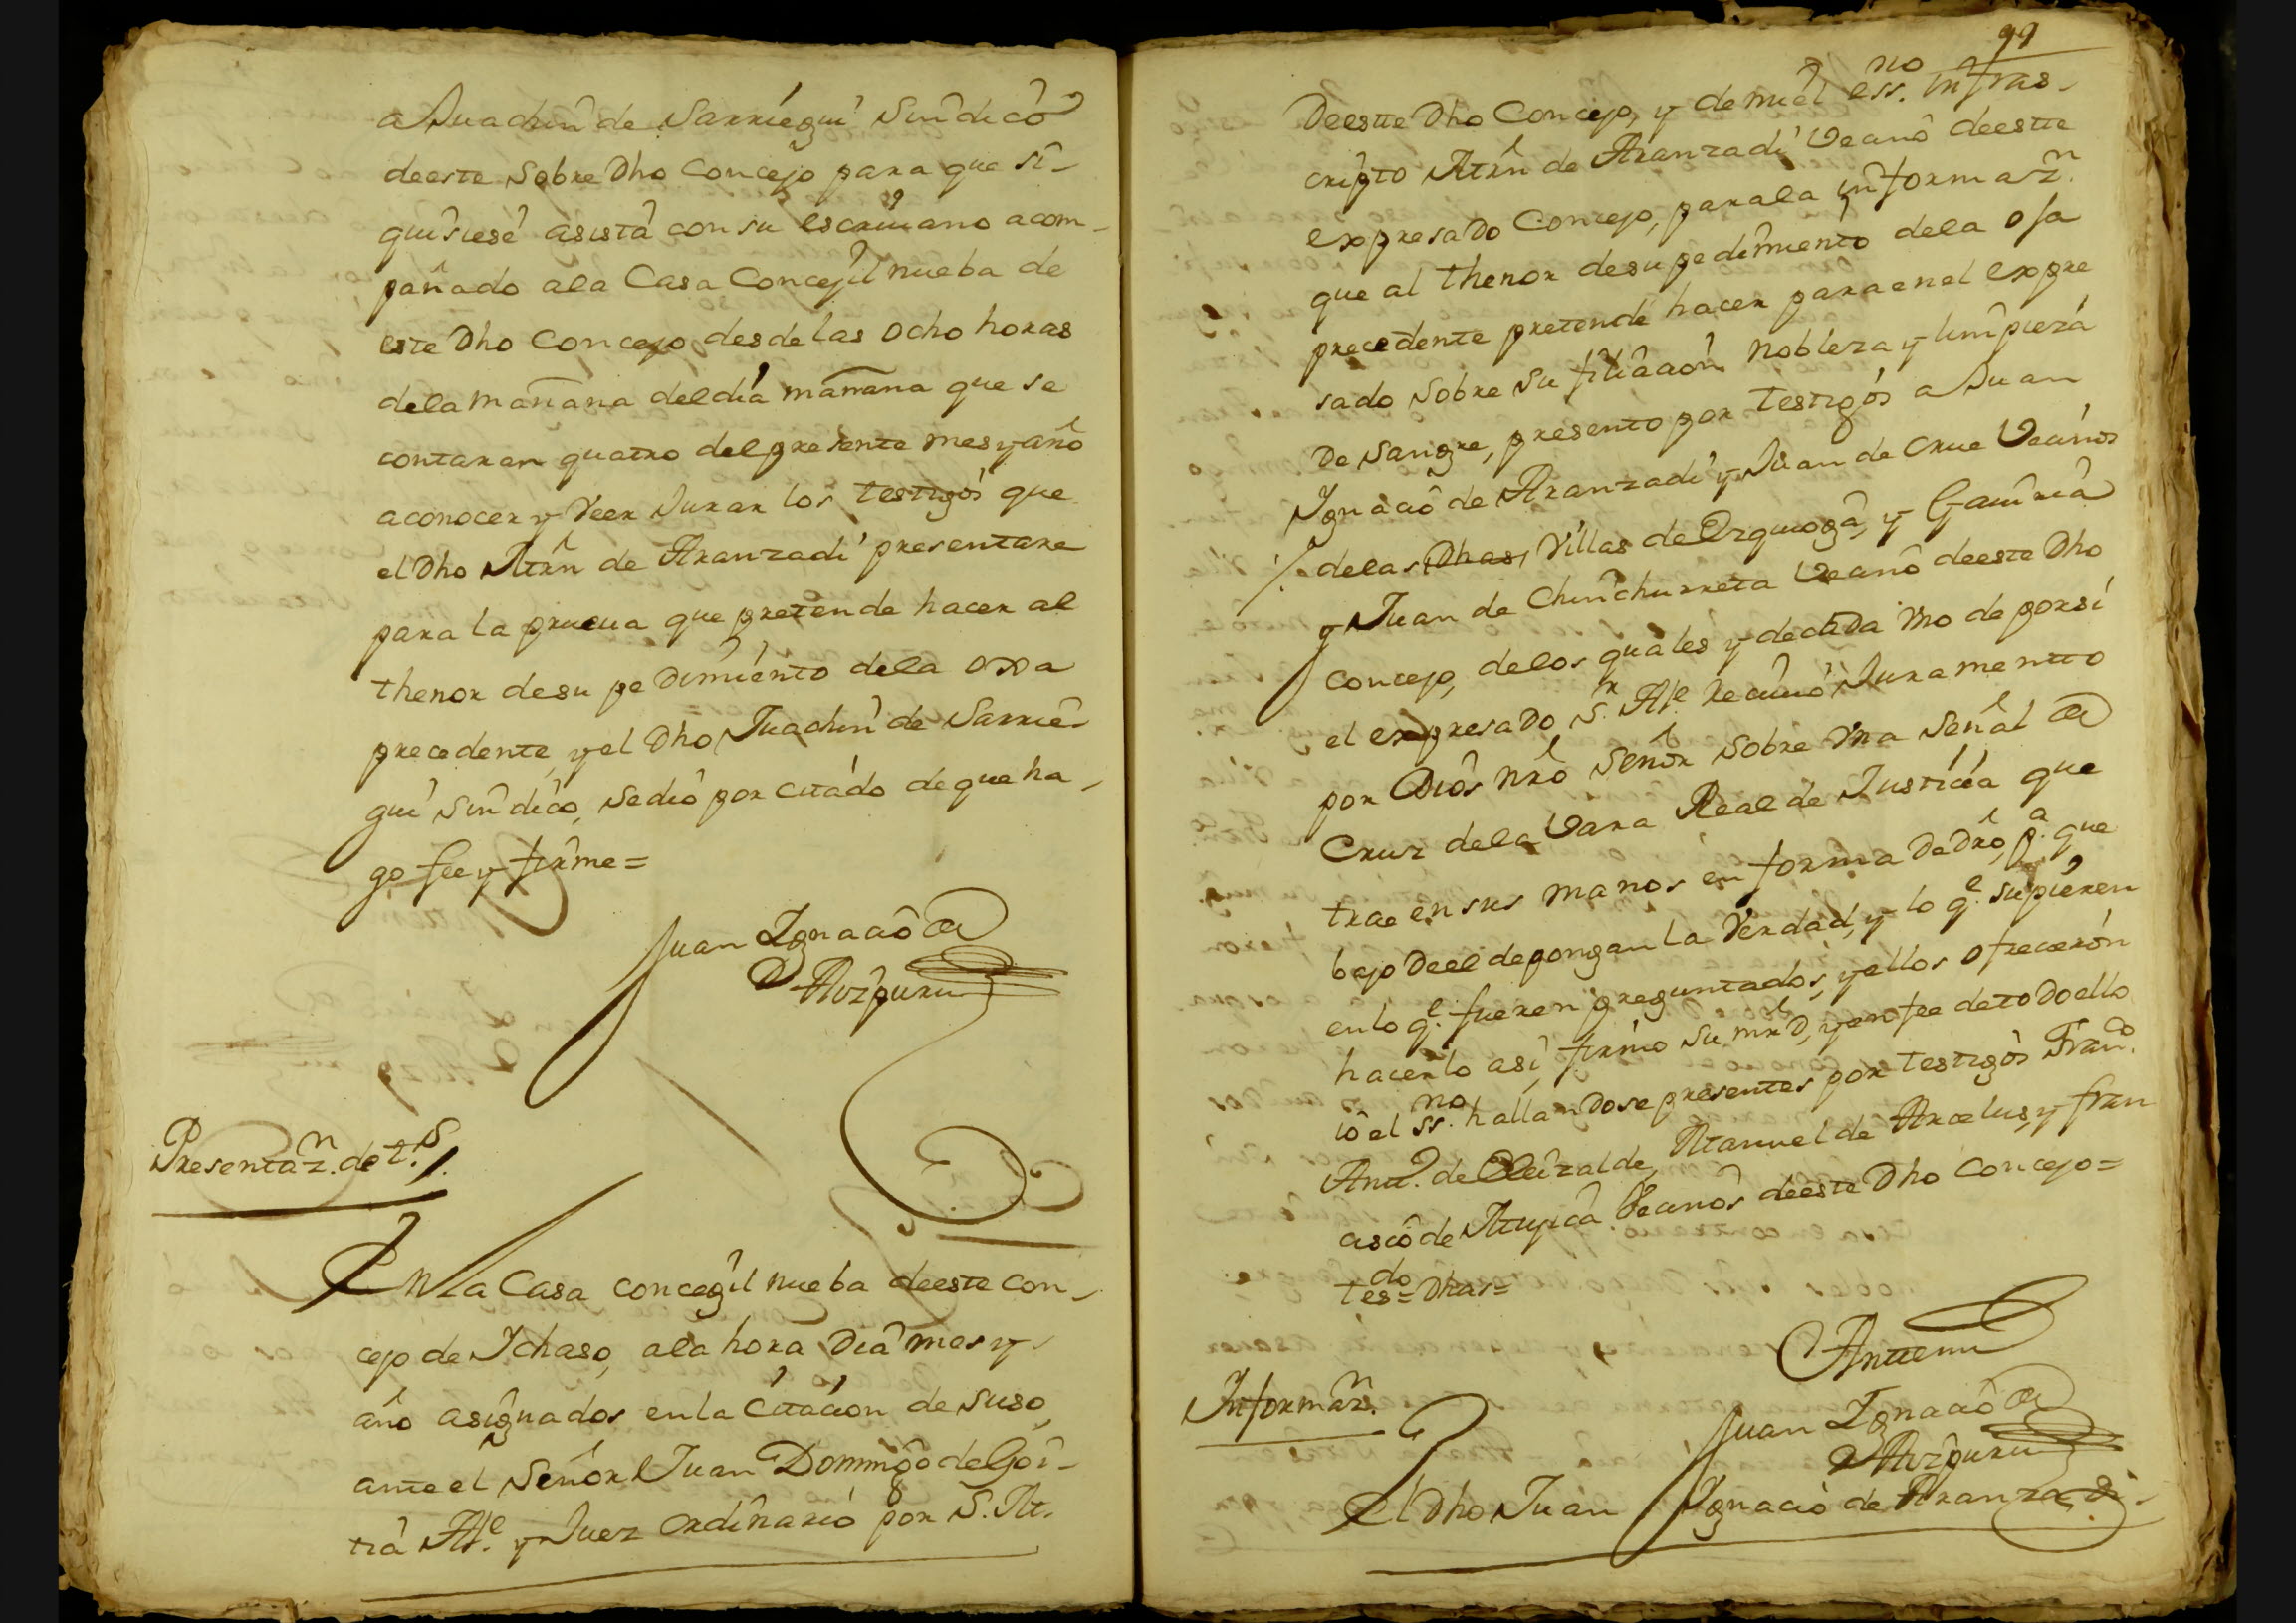 a Juachin de Sarriegui Sindico
de este sobre Dho Concejo para que si-
quisiese asista con su escriuano acom-
pañado ala Casa Concejil nueba de
este Dho Concejo desde las ocho horas
dela mañana del dia mañana que se
contaran quatro del presente mes y año
aconocer y Veer Jurar los testigos que
el Dho Mrn de Aranzadi presentare
para la prueua que pretende hacer al
thenor desu pedimiento dela oxa
precedente, y el Dho Juachin de Sarrie-
gui Sindico, se dio por citado de que ha-
go fee y firme =
Juan Ignacio de
Aizpuru
Presentazn. de ts.
En la Casa concegil nueba de este con-
cejo de Ichaso, ala hora dia mes y
año asignados en la Citacion de suso,
ante el Señor Juan Domingo de Goi-
tia Alce. y Juez ordinario por S. M.
99
De este Dho Concejo, y de mi el essno. infras-
cripto Mrn de Aranzadi Vecino de este
expresado Concejo, para la informazn.
que al thenor desu pedimiento dela oja
precedente pretende hacer para en el expre
sado sobre su filiacion nobleza y limpieza
De sangre, presento por testigos a Juan
Ignacio de Aranzadi y Juan de Crue Vecinos
delas Dhas Villas de Ezquioga, y Gauiria
y Juan de Chinchurreta Vecino de este Dho
Concejo, delos quales y de cada vno de por si
el expresado Sr. Alce. reciuio Juramento
por Dios nro Señor sobre vna Señal de
Cruz dela Vara Real de Justicia que
trae en sus manos en forma de dro, pa. que
bajo de el depongan la Verdad, y lo qe. supieren
en lo qe. fueren preguntados, y ellos ofrecieron
hacerlo asi, firmo su mrd, y en fee de todo ello
io el ssno. hallandose presentes por testigos Franco.
Anto. de Eleizalde, Manuel de Arcelus, y fran
cisco de Mujica Vecinos de este Dho Concejo =
tesdo = Dhas =
Antemi
Juan Ignacio de
Aizpuru
Informazn.
El Dho Juan Ignacio de Aranzadi